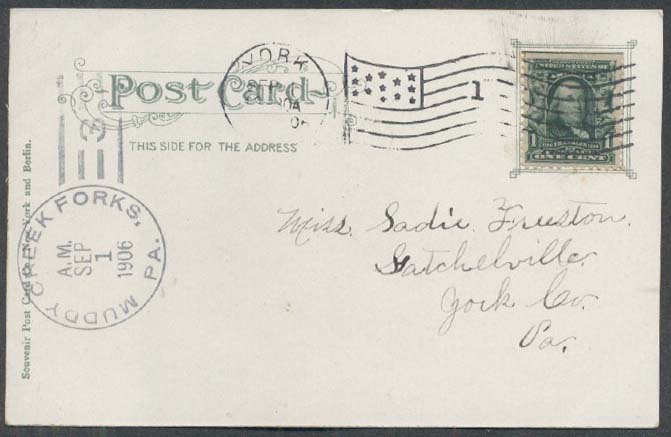 Post Card
THIS SIDE FOR THE ADDRESS
YORK
1
1
ONE CENT
1
Miss. Sadie Freeston.
Satchelville.
York Co.
Pa.
3
MUDDY CREEK FORKS, PA.
A.M.
SEP
1
1906
Souvenir Post Card Co., New York and Berlin.